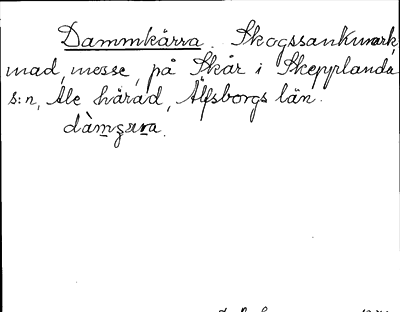 Dammkärra. Skogssankmark,
mad, mosse, på Skår i Skepplanda
s:n, Ale härad, Älfsborgs län.